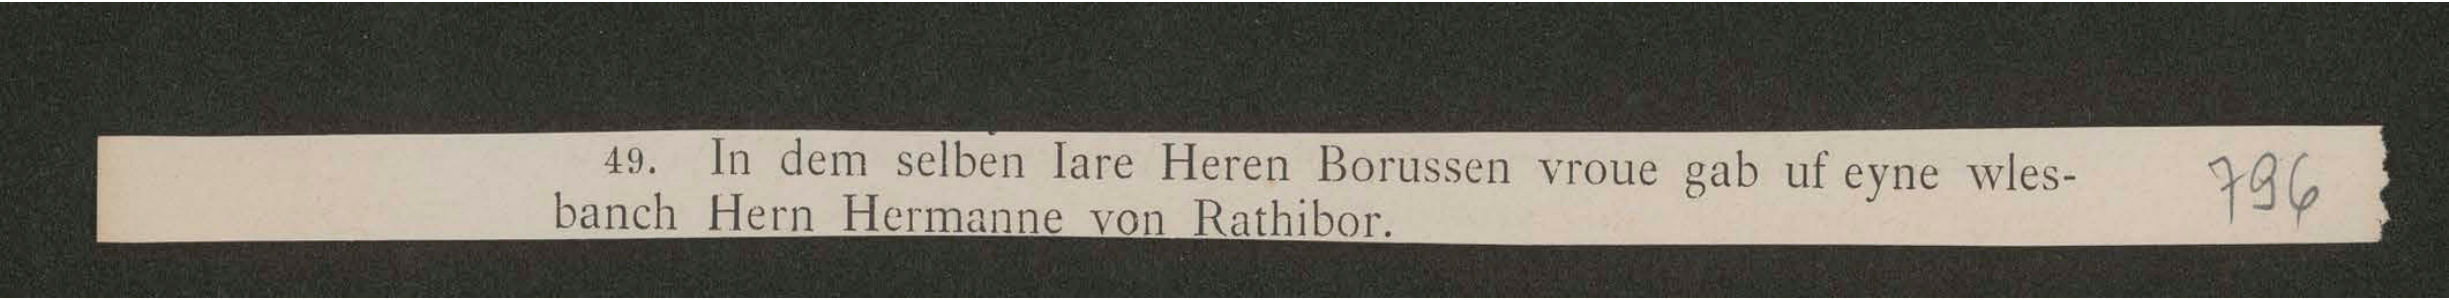 49. In dem selben Iare Heren Borussen vroue gab uf eyne wles-
banch Hern Hermanne von Rathibor.
796